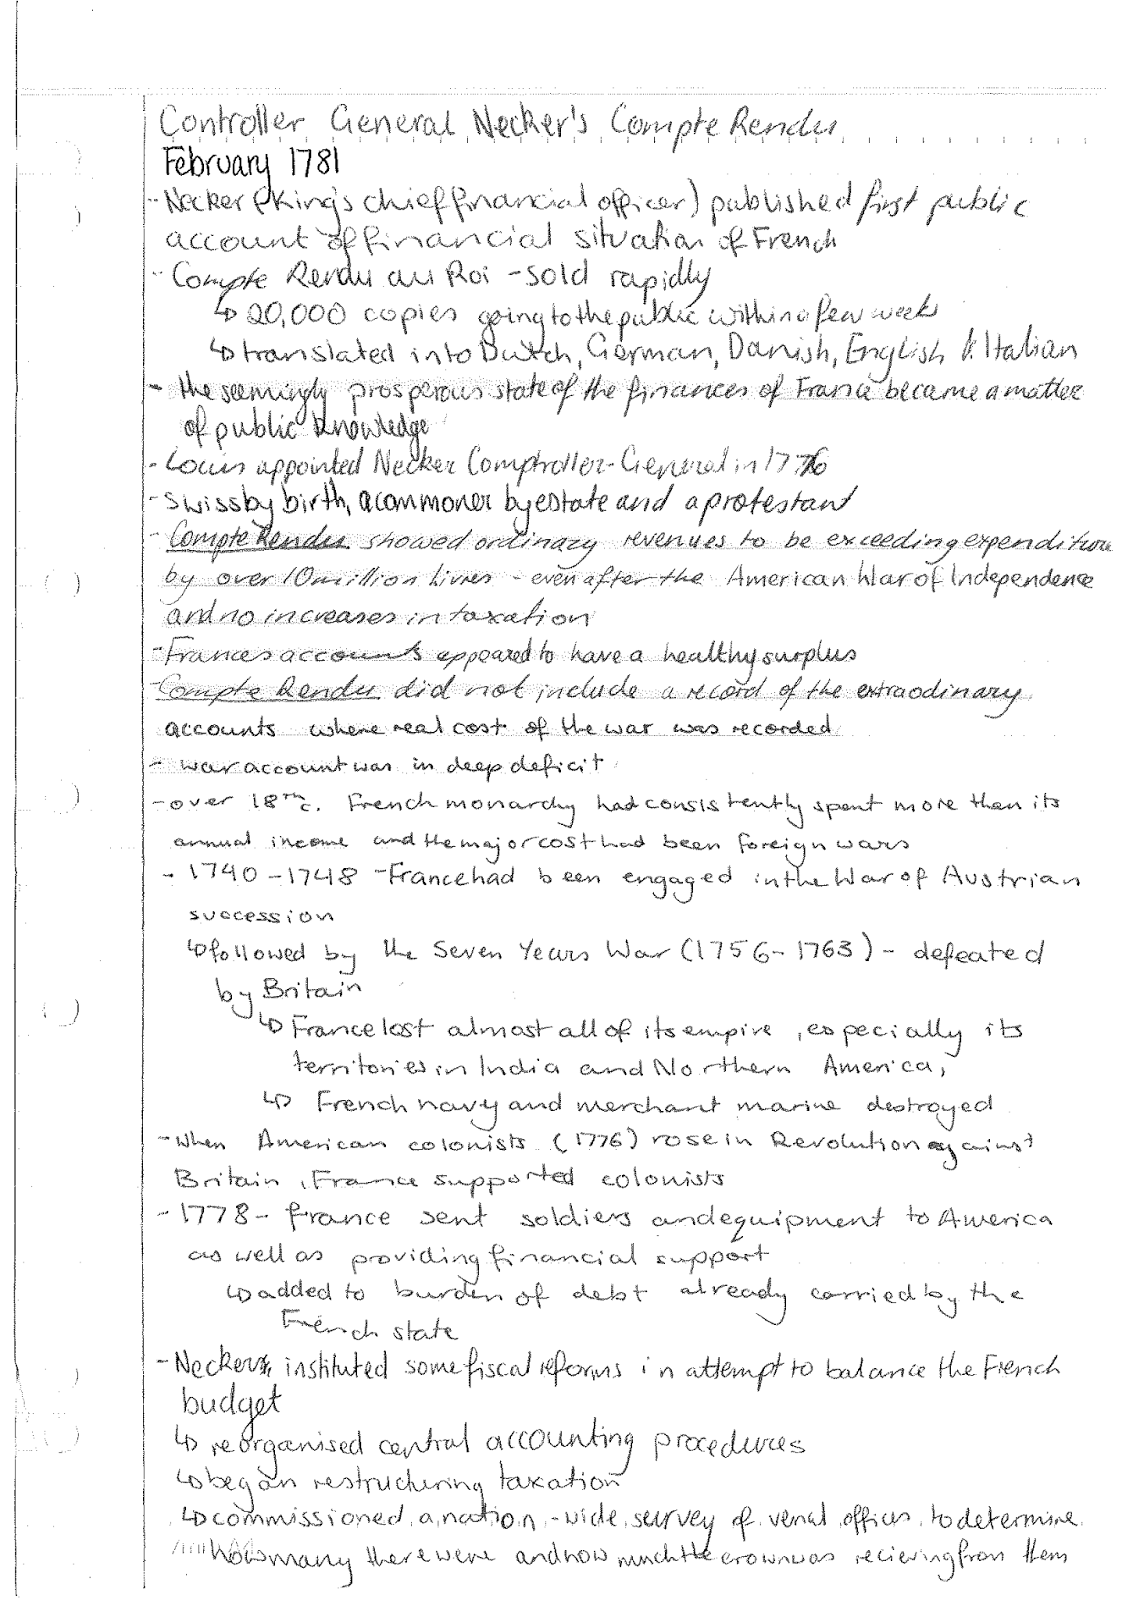 Controller General Necker's Compte Rendu
February 1781
- Necker (King's chief financial officer) published first public
account of financial situation of French
- Compte Rendu au Roi - sold rapidly
↳ 20,000 copies going to the public within a few weeks
↳ translated into Dutch, German, Danish, English & Italian
- the seemingly prosperous state of the finances of France became a matter
of public knowledge
- Louis appointed Necker Comptroller-General in 1776
- Swiss by birth, a commoner by estate and a protestant
- Compte Rendu showed ordinary revenues to be exceeding expenditure
by over 10 million livres - even after the American War of Independence
and no increases in taxation
- Frances accounts appeared to have a healthy surplus
- Compte Rendu did not include a record of the extraodinary
accounts where real cost of the war was recorded
- war account was in deep deficit
- over 18th c. French monarchy had consistently spent more than its
annual income and the major cost had been foreign wars
- 1740 - 1748 - France had been engaged in the War of Austrian
succession
↳ followed by the Seven Years War (1756 - 1763) - defeated
by Britain
↳ France lost almost all of its empire, especially its
territories in India and Northern America,
↳ French navy and merchant marine destroyed
- When American colonists (1776) rose in Revolution against
Britain, France supported colonists
- 1778 - france sent soldiers and equipment to America
as well as providing financial support
↳ added to burden of debt already carried by the
French state
- Necker instituted some fiscal reforms in attempt to balance the French
budget
↳ reorganised central accounting procedures
↳ began restructuring taxation
↳ commissioned a nation-wide survey of venal offices to determine
how many there were and how much the crown was recieving from them